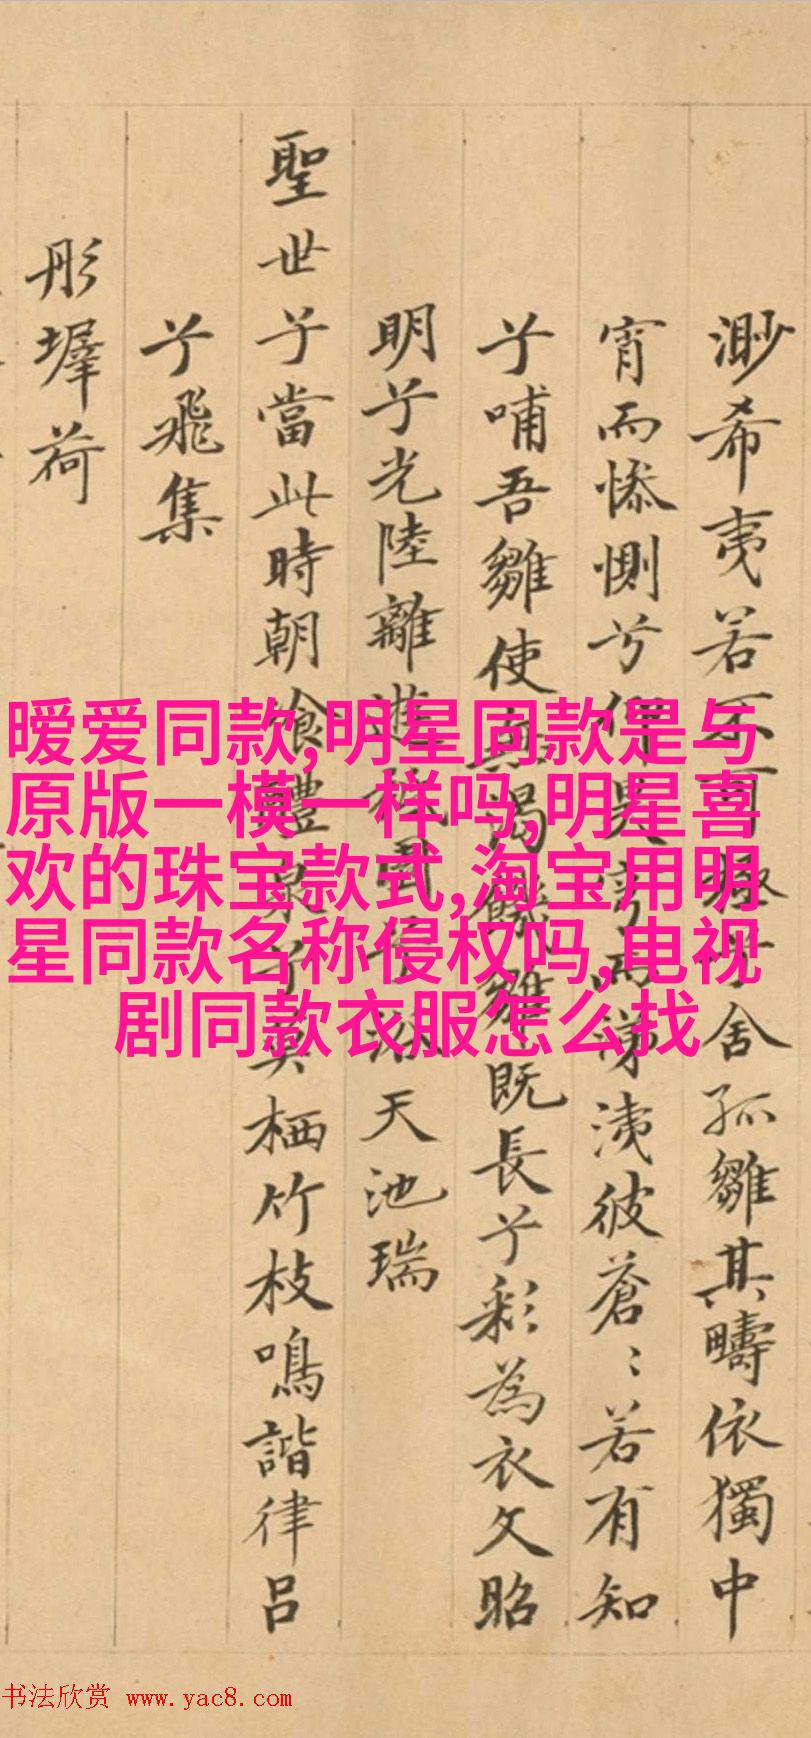 渺希夷若不可極兮舍孤雛其疇依獨中
宵而惨惻兮而涕洟彼蒼〻若有知
兮哺吾雛使無渴飢雛既長兮彩為衣文昭
明兮光陸離進兮浴天池瑞
聖世兮當此時朝飡醴泉兮莫栖竹枝鳴諧律呂
兮飛集
彤墀荷
暧爱同款,明星同款是与
原版一模一样吗,明星喜
欢的珠宝款式,淘宝用明
星同款名称侵权吗,电视
剧同款衣服怎么找
书法欣赏 www.yac8.com